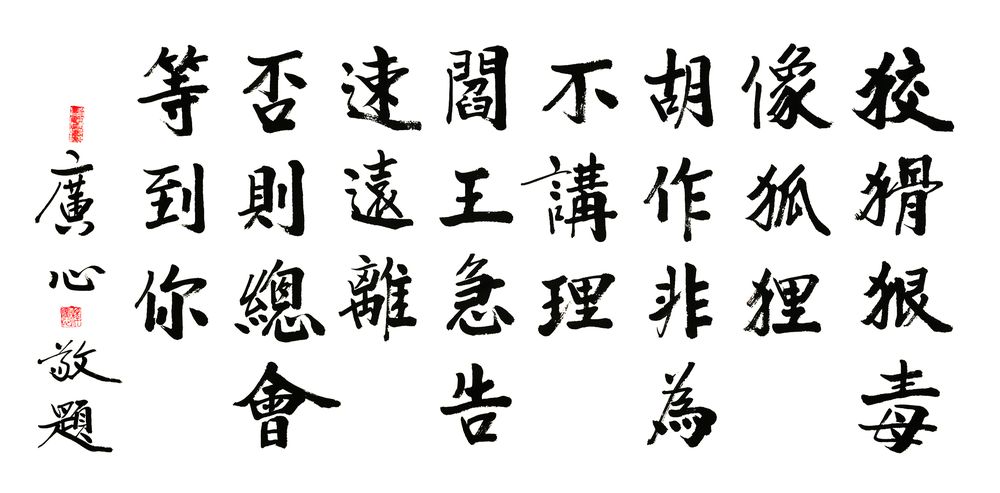 狡猾狠毒
像狐狸
胡作非為
不講理
閻王急告
速遠離
否則總會
等到你
廣心敬題